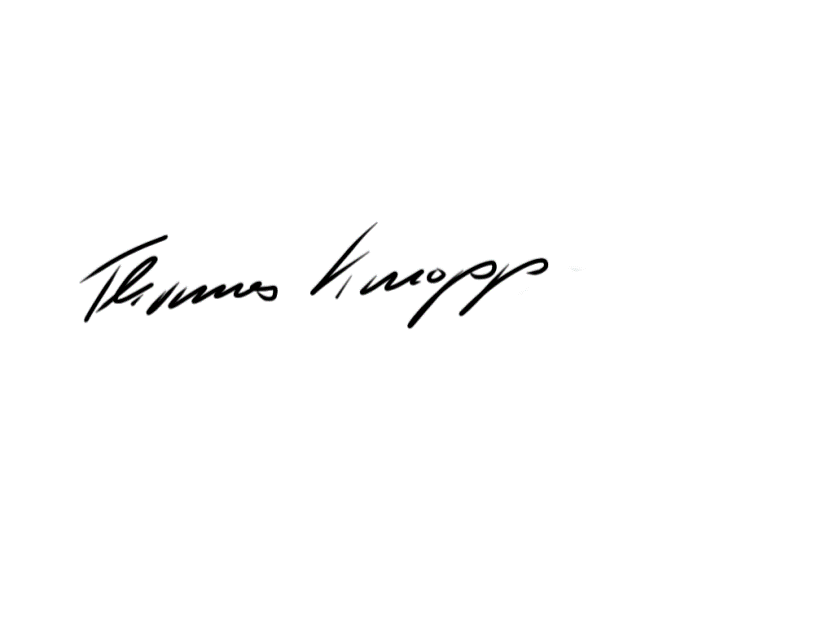 Thomas Knopp